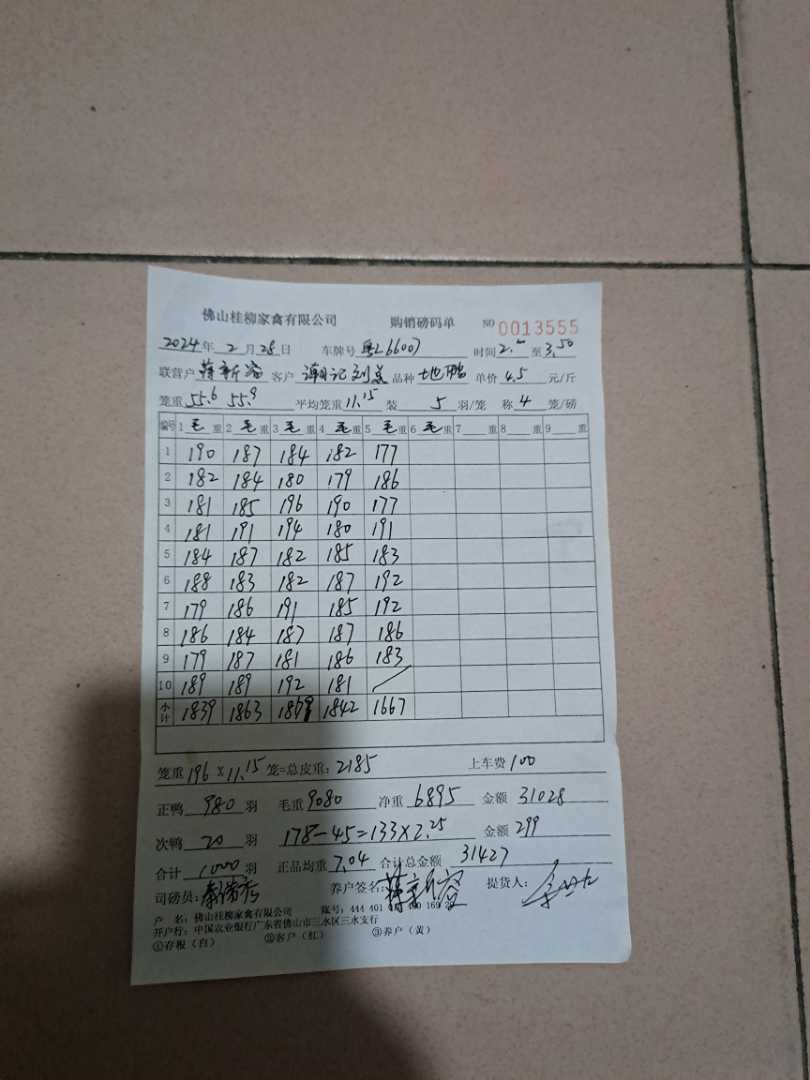 佛山桂柳家禽有限公司 购销磅码单 NO 0013555
2024年 2月 28日 车牌号 粤L66007 时间 2. 至 3.50
联营户 蒋新容 客户 潮记刘总 品种 地鸭 单价 4.5 元/斤
笼重 55.6 55.9 平均笼重 11.15 装 5 羽/笼 称 4 笼/磅
编号 1 毛 重 2 毛 重 3 毛 重 4 毛 重 5 毛 重 6 毛 重 7 重 8 重 9 重
1 190 187 184 182 177
2 182 184 180 179 186
3 181 185 196 190 177
4 181 191 194 180 191
5 184 187 182 185 183
6 188 183 182 187 192
7 179 186 191 185 192
8 186 184 187 187 186
9 179 187 181 186 183
10 189 189 192 181 /
小计 1839 1863 1869 1842 1667
笼重 196 × 11.15 笼=总皮重: 2185 上车费 100
正鸭 980 羽 毛重 9080 净重 6895 金额 31028
次鸭 20 羽 178-45=133×2.25 金额 299
合计 1000 羽 正品均重 7.04 合计总金额 31427
司磅员: 养户签名: 蒋新容 提货人:
户 名: 佛山桂柳家禽有限公司 账号: 444 401
开户行: 中国农业银行广东省佛山市三水区三水支行
①存根(白) ②客户(红) ③养户(黄)